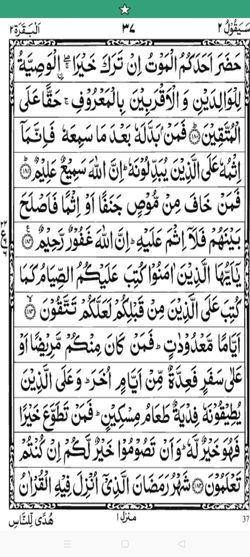 سَيَقُولُ ٢ ٣٧ اَلْبَقَرَة ٢
حَضَرَ اَحَدَكُمُ الْمَوْتُ اِنْ تَرَكَ خَيْرًا ۖۚ اۨلْوَصِيَّةُ
لِلْوَالِدَيْنِ وَالْاَقْرَبِيْنَ بِالْمَعْرُوْفِ ۚ حَقًّا عَلَى
الْمُتَّقِيْنَ ؕ﴿۱۸۰﴾ فَمَنْۢ بَدَّلَهٗ بَعْدَ مَا سَمِعَهٗ فَاِنَّمَاۤ
اِثْمُهٗ عَلَى الَّذِيْنَ يُبَدِّلُوْنَهٗ ؕ اِنَّ اللّٰهَ سَمِيْعٌ عَلِيْمٌ ؕ﴿۱۸۱﴾
فَمَنْ خَافَ مِنْ مُّوْصٍ جَنَفًا اَوْ اِثْمًا فَاَصْلَحَ
بَيْنَهُمْ فَلَاۤ اِثْمَ عَلَيْهِ ؕ اِنَّ اللّٰهَ غَفُوْرٌ رَّحِيْمٌ ﴿۱۸۲﴾
يٰۤاَيُّهَا الَّذِيْنَ اٰمَنُوْا كُتِبَ عَلَيْكُمُ الصِّيَامُ كَمَا
كُتِبَ عَلَى الَّذِيْنَ مِنْ قَبْلِكُمْ لَعَلَّكُمْ تَتَّقُوْنَ ۙ﴿۱۸۳﴾
اَيَّامًا مَّعْدُوْدٰتٍ ؕ فَمَنْ كَانَ مِنْكُمْ مَّرِيْضًا اَوْ
عَلٰى سَفَرٍ فَعِدَّةٌ مِّنْ اَيَّامٍ اُخَرَ ؕ وَعَلَى الَّذِيْنَ
يُطِيْقُوْنَهٗ فِدْيَةٌ طَعَامُ مِسْكِيْنٍ ؕ فَمَنْ تَطَوَّعَ خَيْرًا
فَهُوَ خَيْرٌ لَّهٗ ؕ وَاَنْ تَصُوْمُوْا خَيْرٌ لَّكُمْ اِنْ كُنْتُمْ
تَعْلَمُوْنَ ﴿۱۸۴﴾ شَهْرُ رَمَضَانَ الَّذِيْۤ اُنْزِلَ فِيْهِ الْقُرْاٰنُ
هُدًى لِّلنَّاسِ منزل ١ 37